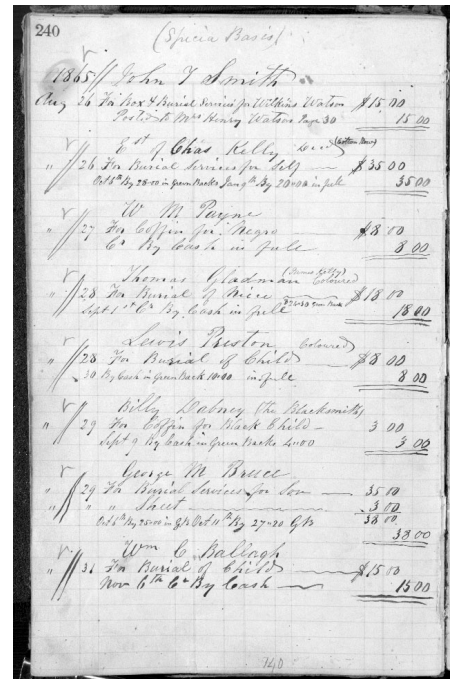 240
(Specia Basis)
1865 // John T Smith
Aug 26 For Box & Burial Services for Wilkins Watson $15.00
Posted to Mrs Henry Watson Page 30 15 00
Est of Chas Kelly Decd
" // 26 For Burial Services for Self — $35.00
Oct 5th By 28.00 in Green Backs By 20.00 in full 35.00
W. M Payne
" // 27 For Coffin for Negro — $8 00
Cr By Cash in full 8 00
Thomas Gladman Coloured
" // 28 For Burial of Niece — $18.00
Sept 1st Cr By Cash in full 18 00
Lewis Preston Coloured
" // 28 For Burial of Child — $8 00
" 30 By Cash in Green Back in full 8 00
Billy Dabney (the Blacksmith)
" // 29 For Coffin for Black Child — 3 00
Sept 9 By Cash in Green Backs 4.00 3 00
George M Bruce
" // 29 For Burial Services for Son — 35 00
" " " Sheet — 3.00
Oct 5th By 25.00 in GBs Oct 11th By 27.20 GB 38 00
38.00
Wm C Balingh
" // 31 For Burial of Child — $15 00
Nov 6th Cr By Cash — 15 00
140